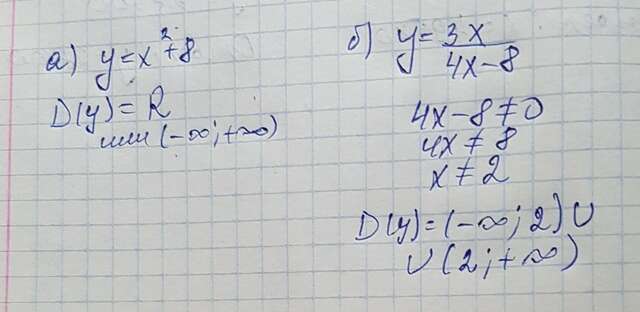 а) y=x²+8
D(y)=R
или (-∞;+∞)
б) y=3x/4x-8
4x-8≠0
4x≠8
x≠2
D(y)=(-∞;2)∪
∪(2;+∞)